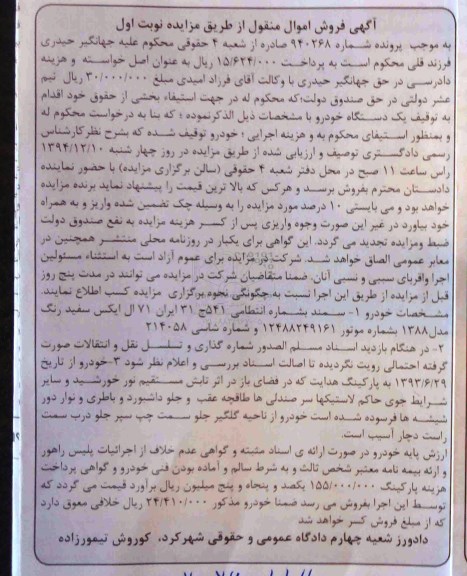 آگهی فروش اموال منقول از طریق مزایده نوبت اول
به موجب پرونده شماره ۹۴۰۲۶۸ صادره از شعبه ۴ حقوقی محکوم علیه جهانگیر حیدری
فرزند قلی محکوم است به پرداخت ۱۵/۶۲۴/۰۰۰ ریال به عنوان اصل خواسته و هزینه
دادرسی در حق جهانگیر حیدری با وکالت آقای فرزاد امیدی مبلغ ۳۰/۰۰۰/۰۰۰ ریال نیم
عشر دولتی در حق صندوق دولت؛که محکوم له در جهت استیفاء بخشی از حقوق خود اقدام
به توقیف یک دستگاه خودرو با مشخصات ذیل الذکرنموده ؛ که بنا به درخواست محکوم له
و بمنظور استیفای محکوم به و هزینه اجرایی ؛ خودرو توقیف شده که بشرح نظرکارشناس
رسمی دادگستری توصیف و ارزیابی شده از طریق مزایده در روز چهار شنبه ۱۳۹۴/۱۲/۱۰
راس ساعت ۱۱ صبح در محل دفتر شعبه ۴ حقوقی (سالن برگزاری مزایده) با حضور نماینده
دادستان محترم بفروش برسد و هرکس که بالا ترین قیمت را پیشنهاد نماید برنده مزایده
خواهد بود و می بایستی ۱۰ درصد مورد مزایده را به وسیله چک تضمین شده واریز و به همراه
خود بیاورد در غیر این صورت وجوه واریزی پس از کسر هزینه مزایده به نفع صندوق دولت
ضبط ومزایده تجدید می گردد. این گواهی برای یکبار در روزنامه محلی منتشر همچنین در
معابر عمومی الصاق خواهد شد. شرکت در مزایده برای عموم آزاد است به استثناء مسئولین
اجرا واقربای سببی و نسبی آنان. ضمنا متقاضیان شرکت در مزایده می توانند در مدت پنج روز
قبل از مزایده از طریق این اجرا نسبت به چگونگی نحوه برگزاری مزایده کسب اطلاع نمایند.
مشخصات خودرو ۱- سمند بشماره انتظامی ۵۴۱ج ۳۱ ایران ۷۱ ال ایکس سفید رنگ
مدل۱۳۸۸ بشماره موتور ۱۲۴۸۸۲۴۹۱۶۱ و شماره شاسی ۲۱۴۰۵۸
۲- در هنگام بازدید اسناد مسلم الصدور شماره گذاری و تسلسل نقل و انتقالات صورت
گرفته احتمالی رویت نگردیده تا اصالت اسناد بررسی و اعلام نظر شود ۳-خودرو از تاریخ
۱۳۹۳/۶/۲۹ به پارکینگ هدایت که در فضای باز در اثر تابش مستقیم نور خورشید و سایر
شرایط جوی حاکم لاستیکها سر صندلی ها طاقچه عقب و جلو داشبورد و باطری و نوار دور
شیشه ها فرسوده شده است خودرو از ناحیه گلگیر جلو سمت چپ سپر جلو درب سمت
راست دچار آسیب است.
ارزش پایه خودرو در صورت ارائه ی اسناد مثبته و گواهی عدم خلاف از اجرائیات پلیس راهور
و ارئه بیمه نامه معتبر شخص ثالث و به شرط سالم و آماده بودن فنی خودرو و گواهی پرداخت
هزینه پارکینگ ۱۵۵/۰۰۰/۰۰۰ یکصد و پنجاه و پنج میلیون ریال برآورد قیمت می گردد که
توسط این اجرا بفروش می رسد ضمنا خودرو مذکور ۲۴/۴۱۰/۰۰۰ ریال خلافی معوق دارد
که از مبلغ فروش کسر خواهد شد
دادورز شعبه چهارم دادگاه عمومی و حقوقی شهرکرد، کوروش تیمورزاده